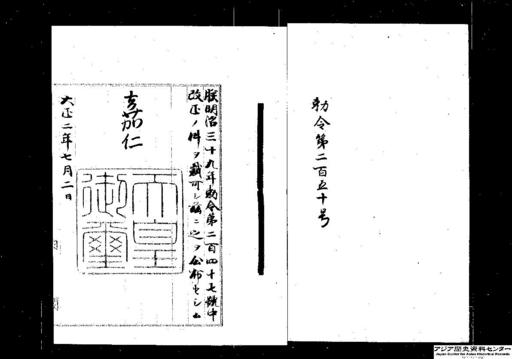 勅令第二百五十号
朕明治三十九年勅令第二百四十七號中
改正ノ件ヲ裁可シ茲ニ之ヲ公布セシム
嘉仁
天皇御璽
大正二年七月二日
アジア歴史資料センター
Japan Center for Asian Historical Records